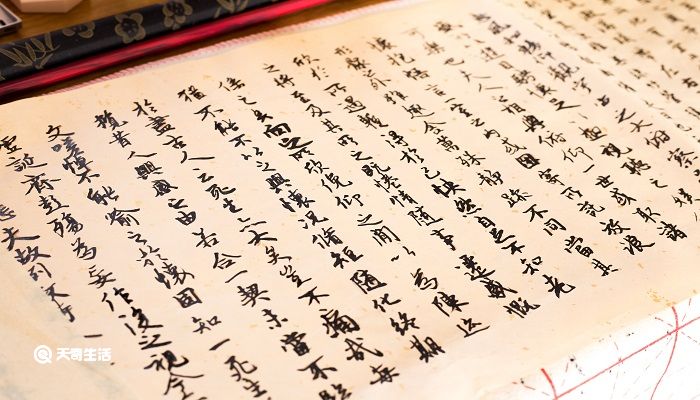 風和暢仰觀宇宙之大俯察
以遊目騁懷足以極視聽之
可樂也夫人之相與俯仰一世或取諸
懷抱悟言一室之內或因寄所託放浪
形骸之外雖趣舍萬殊靜躁不同當其
欣於所遇暫得於己怏然自足不知老
之將至及其所之既惓情隨事遷感慨
係之矣向之所欣俛仰之間以為陳迹
猶不能不以之興懷況脩短隨化終期
於盡古人云死生亦大矣豈不痛哉每
攬昔人興感之由若合一契未嘗不臨
文嗟悼不能喻之於懷固知一死生
虛誕齊彭殤為妄作後之視今
悲夫故列敘時
天奇生活